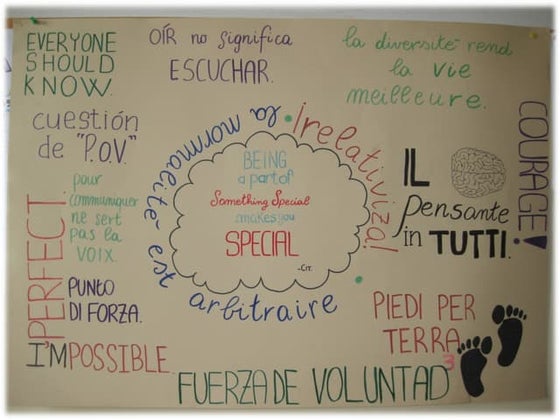 EVERYONE
SHOULD
KNOW.
OÍR no significa
ESCUCHAR.
la diversité rend
la vie
meilleure.
cuestión
de "P.O.V."
la normalité est arbitraire
¡relativiza!
COURAGE!
BEING
a part of
Something Special
makes you
SPECIAL
-Cit.
IL
pensante
in TUTTI.
pour
communiquer
ne sert
pas la
VOIX.
PERFECT.
PUNTO
DI FORZA.
I'MPOSSIBLE
PIEDI PER
TERRA
3
FUERZA DE VOLUNTAD